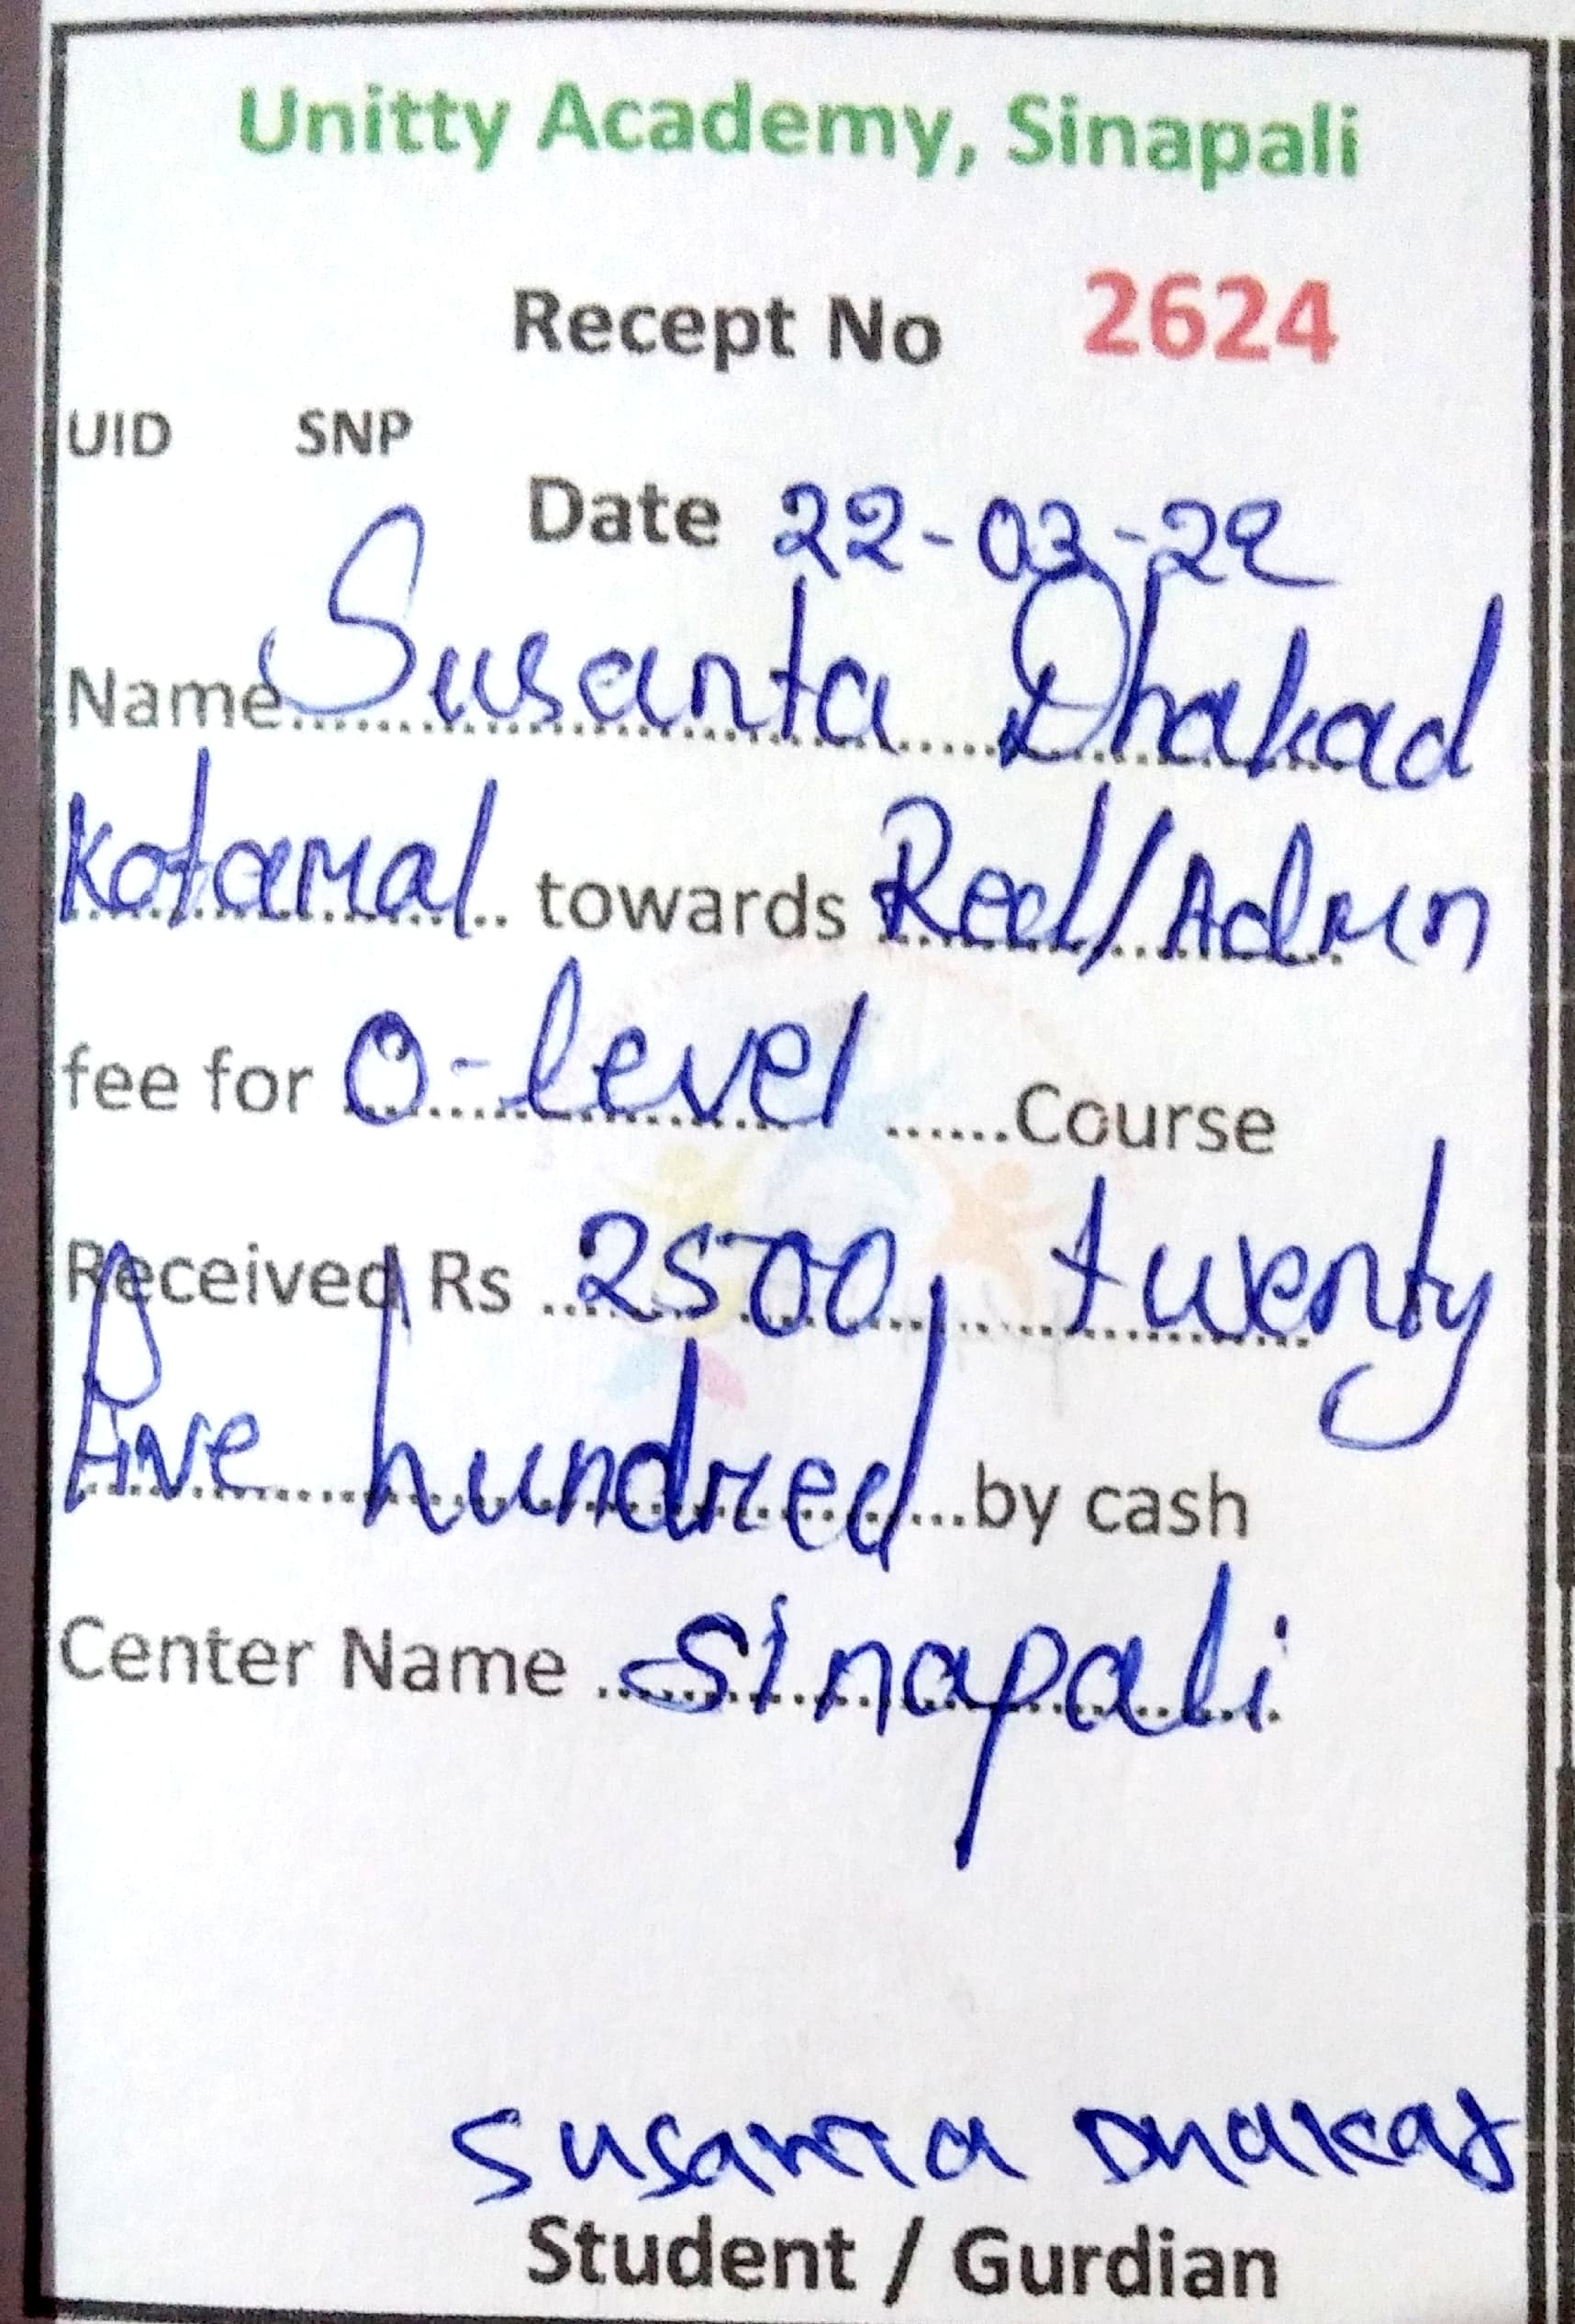 Unitty Academy, Sinapali
Recept No 2624
UID SNP
Date 22-03-22
Name Susanta Dhakad
Kotamal towards Red/Admn
fee for O-level Course
Received Rs 2500, twenty
five hundred by cash
Center Name Sinapali
Susanta Dhakad
Student / Gurdian